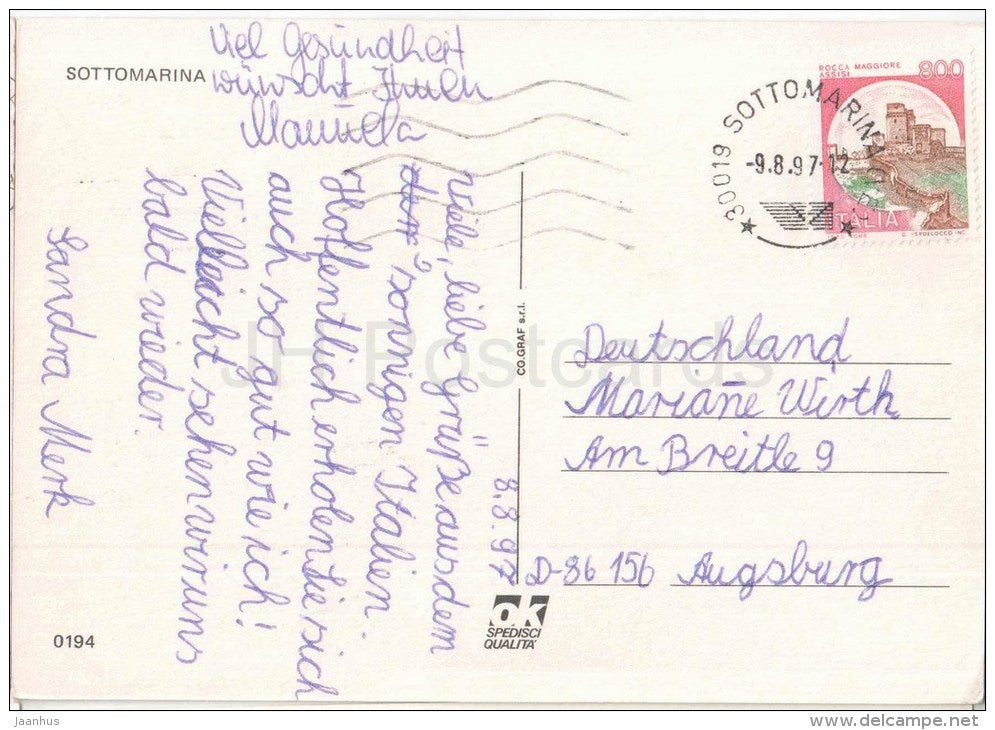 SOTTOMARINA
Viel Gesundheit
wünscht Ihnen
Manuela
8.8.97
Viele, liebe Grüße aus dem
sonnigen Italien.
Hofentlich erholen Sie sich
auch so gut wie ich!
Vielleicht sehen wir uns
bald wieder.
Sandra Merk
0194
CO.GRAF s.r.l.
ok
SPEDISCI
QUALITA'
ROCCA MAGGIORE
ASSISI
800
ITALIA
30019 SOTTOMARINA
-9.8.97-12
Deutschland
Mariane Wirth
Am Breitle 9
D-86 156 Augsburg
JH Postcards
jaanhus
www.delcampe.net